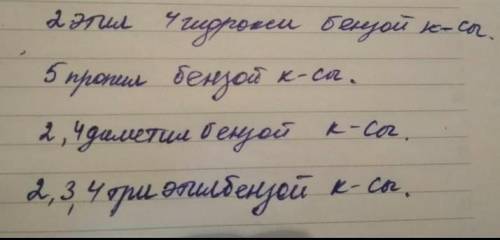 2 этил 4 гидрокси бензой к-сы.
5 пропил бензой к-сы.
2, 4 диметил бензой к-сы.
2, 3, 4 три этилбензой к-сы.